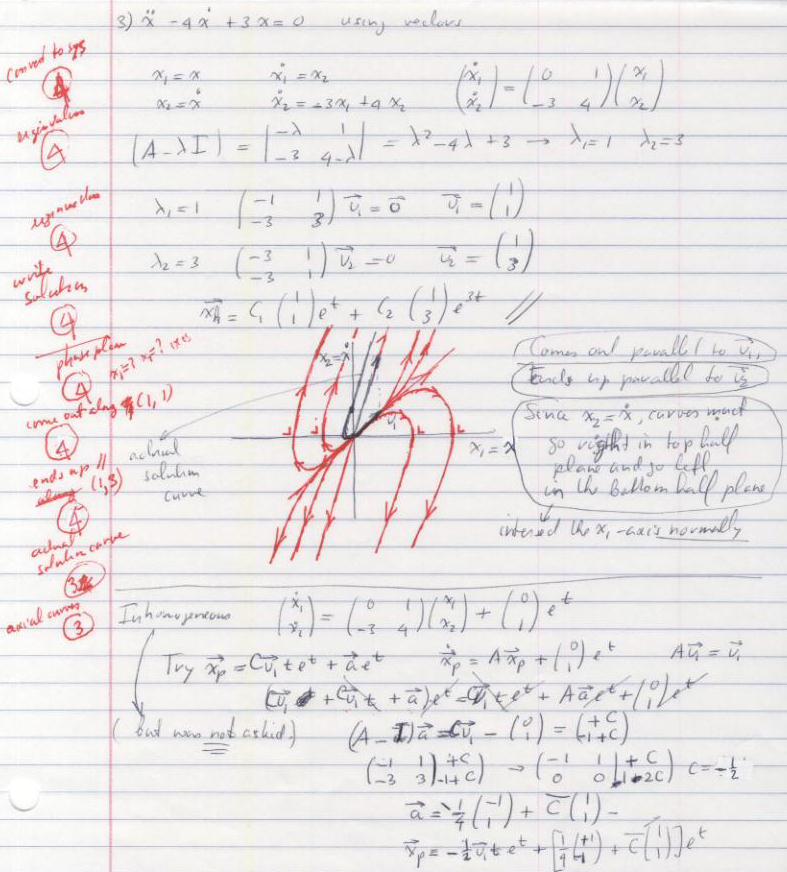 3) ẍ - 4ẋ + 3x = 0 using vectors
Convert to sys
4
x₁ = x ẋ₁ = x₂
x₂ = ẋ ẋ₂ = -3x₁ + 4x₂
(ẋ₁ ; ẋ₂) = (0 1 ; -3 4)(x₁ ; x₂)
eigenvalues
4
(A - λI) = |-λ 1 ; -3 4-λ| = λ² - 4λ + 3 → λ₁ = 1 λ₂ = 3
4
λ₁ = 1 (-1 1 ; -3 3) v₁ = 0 v₁ = (1 ; 1)
λ₂ = 3 (-3 1 ; -3 1) v₂ = 0 v₂ = (1 ; 3)
write
solution
4
xₕ = C₁ (1 ; 1) eᵗ + C₂ (1 ; 3) e³ᵗ //
phase plane
x₁=? x₂=?
4
come out along (1, 1)
4
ends up //
along (1,3)
4
actual
solution curve
3
axial curves
3
x₂ = ẋ
v₁
x₁ = x
actual
solution
curve
Comes out parallel to v₁,
Ends up parallel to v₂
Since x₂ = ẋ, curves must
go right in top half
plane and go left
in the bottom half plane
intersect the x₁-axis normally
Inhomogeneous (ẋ₁ ; ẋ₂) = (0 1 ; -3 4)(x₁ ; x₂) + (0 ; 1) eᵗ
Try xₚ = Cv₁teᵗ + aeᵗ ẋₚ = Axₚ + (0 ; 1) eᵗ Av₁ = v₁
(Cv₁ + Cv₁t + a)eᵗ = Cv₁teᵗ + Aaeᵗ + (0 ; 1)eᵗ
(but was not asked.) (A - I)a = Cv₁ - (0 ; 1) = (+C ; -1+C)
(-1 1 ; -3 3 | +C ; -1+C) → (-1 1 ; 0 0 | +C ; -1-2C) C = -½
a = ¼(-1 ; 1) + C̄(1 ; 1)
xₚ = -½v₁teᵗ + [¼(+1 ; -1) + C̄(1 ; 1)]eᵗ